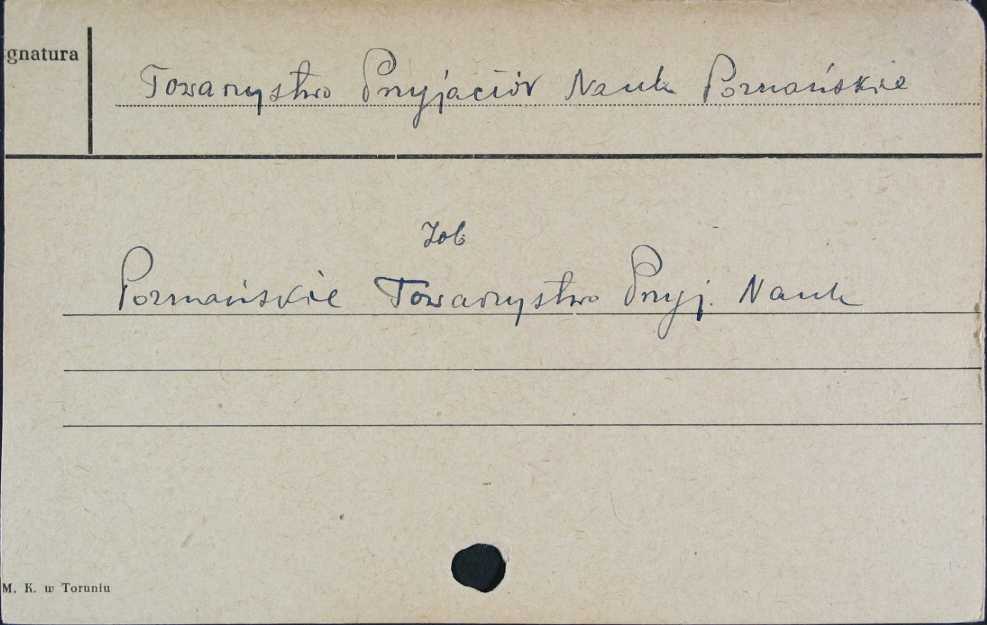 gnatura
Towarzystwo Przyjaciół Nauk Poznańskie
Zob.
Poznańskie Towarzystwo Przyj. Nauk
M. K. w Toruniu